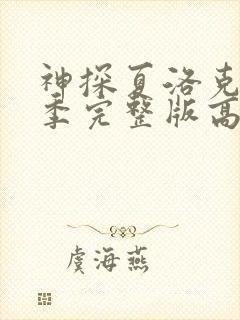 神探夏洛克
季完整版高
虞海燕